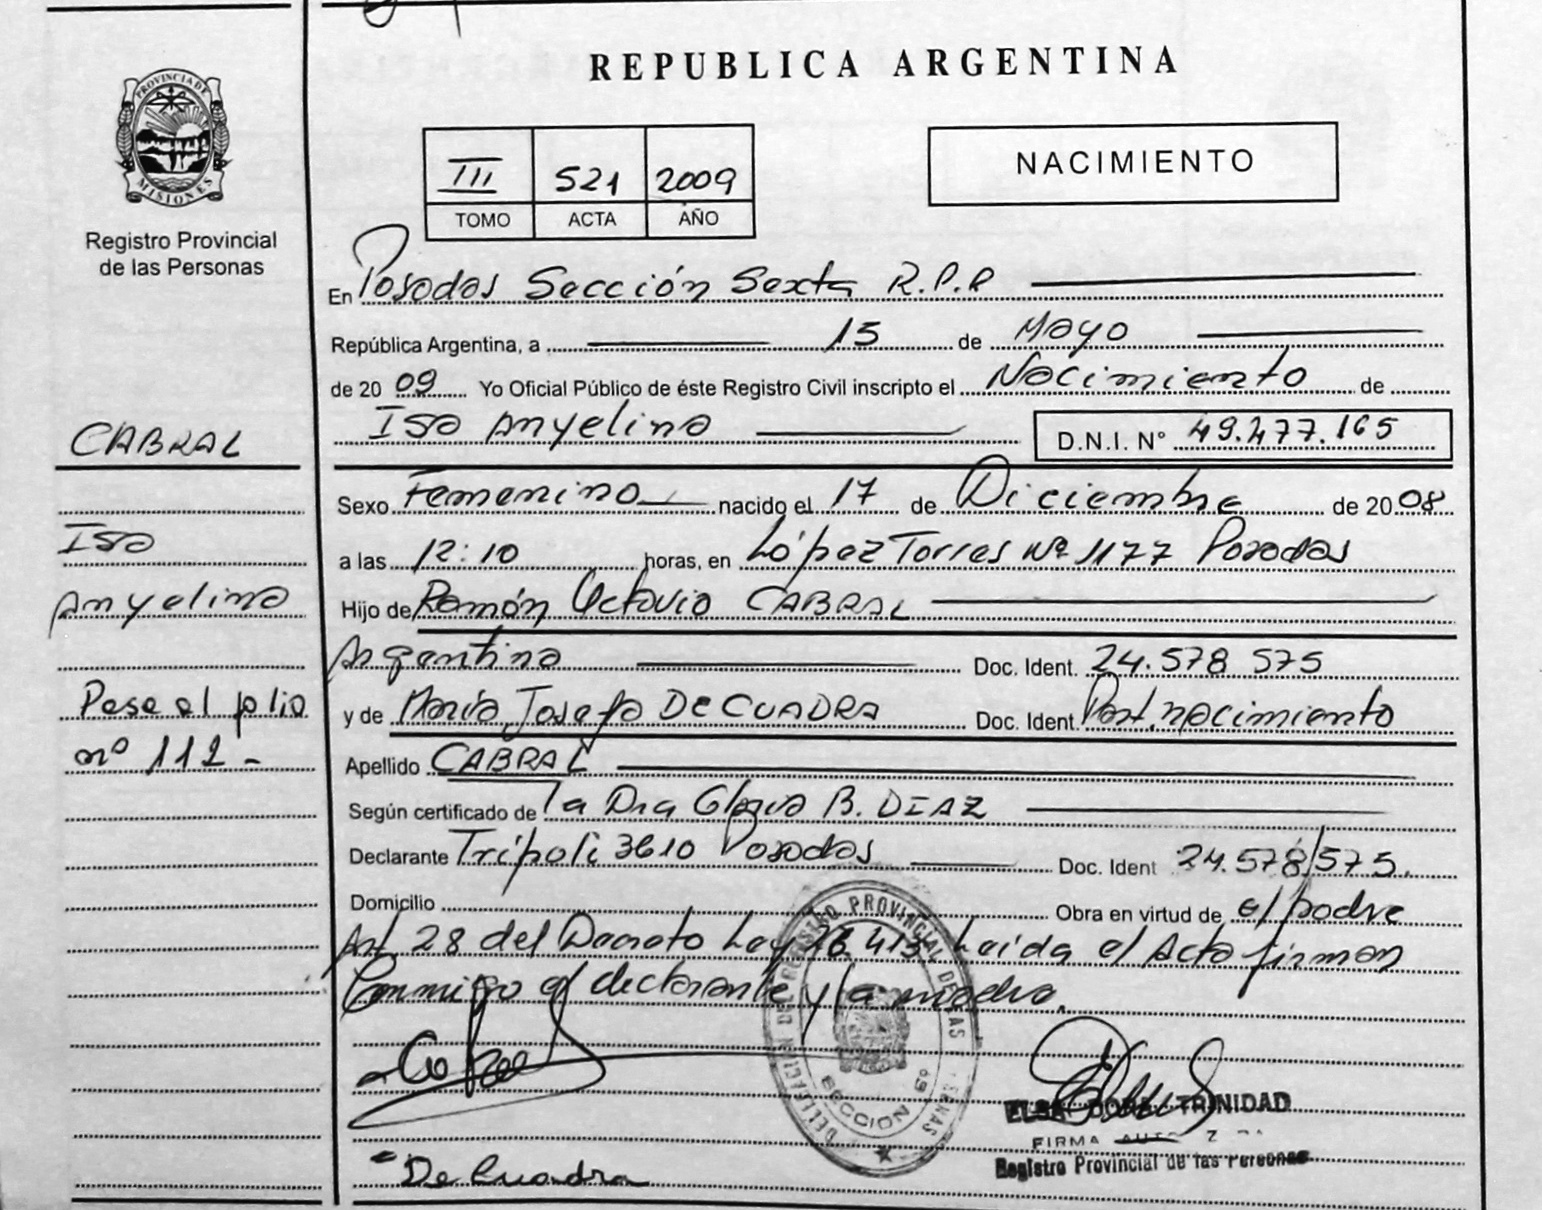 REPUBLICA ARGENTINA
PROVINCIA DE
MISIONES
Registro Provincial
de las Personas
III 521 2009
TOMO ACTA AÑO
NACIMIENTO
En Posadas Sección Sexta R.P.P
República Argentina, a 15 de Mayo
de 20 09 Yo Oficial Público de éste Registro Civil inscripto el Nacimiento de
Isa Anyelina D.N.I. Nº 49.477.165
CABRAL
Isa
Anyelina
Pase al folio
nº 112 -
Sexo Femenino nacido el 17 de Diciembre de 20 08
a las 12:10 horas, en López Torres Nº 1177 Posadas
Hijo de Ramón Octavio CABRAL
Argentino Doc. Ident. 24.578 575
y de María Josefa DE CUADRA Doc. Ident. Post. nacimiento
Apellido CABRAL
Según certificado de la Dra B. DIAZ
Declarante Trípoli 3610 Posadas Doc. Ident 24.578/575.
Domicilio Obra en virtud de el padre
Art 28 del Decreto Ley Leída el Acta firman
Conmigo el declarante y la madre.
DEL REGISTRO PROVINCIAL DE LAS
SECCION 6º
TRINIDAD
FIRMA
Registro Provincial de las Personas
De Cuadra